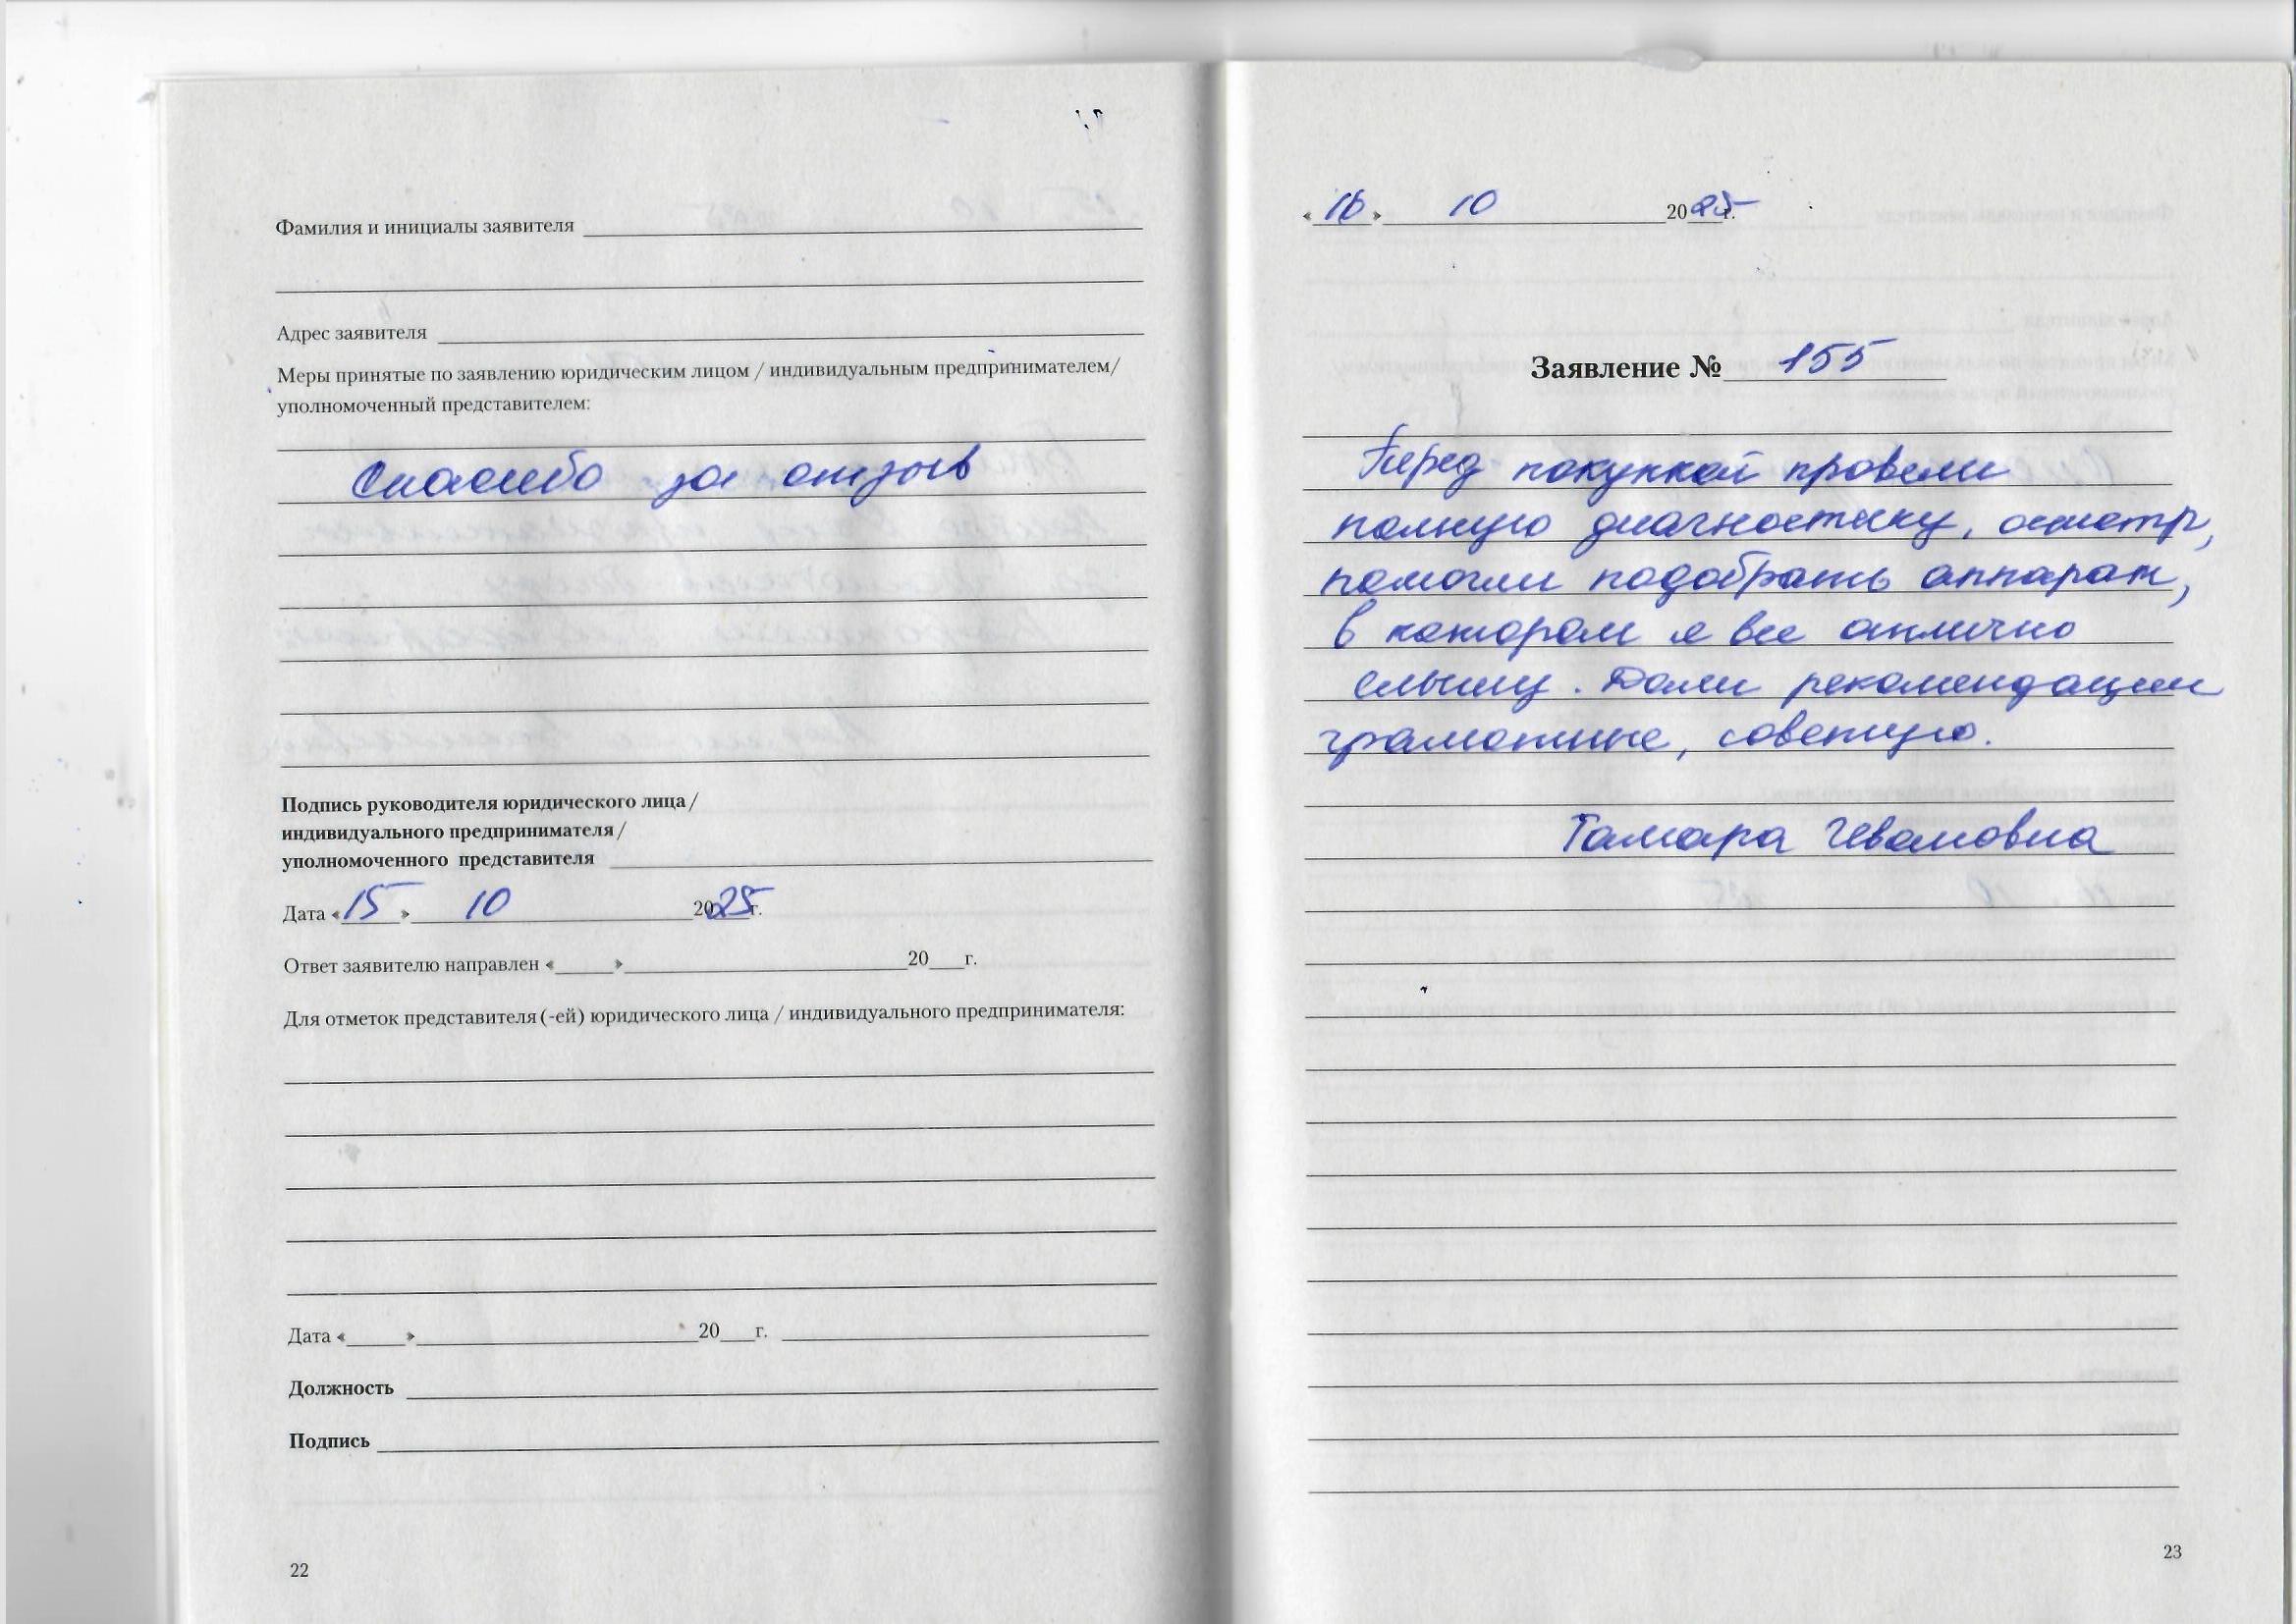 Фамилия и инициалы заявителя
Адрес заявителя
Меры принятые по заявлению юридическим лицом / индивидуальным предпринимателем/
уполномоченный представителем:
Спасибо за отзыв
Подпись руководителя юридического лица /
индивидуального предпринимателя /
уполномоченного представителя
Дата «15» 10 2025г.
Ответ заявителю направлен «_____» 20___г.
Для отметок представителя (-ей) юридического лица / индивидуального предпринимателя:
Дата «_____» 20___г.
Должность
Подпись
22
«16» 10 2025г.
Заявление № 155
Перед покупкой провели
полную диагностику, осмотр,
помогли подобрать аппарат,
в котором я все отлично
слышу. Дали рекомендации
грамотные, советую.
Тамара Ивановна
23